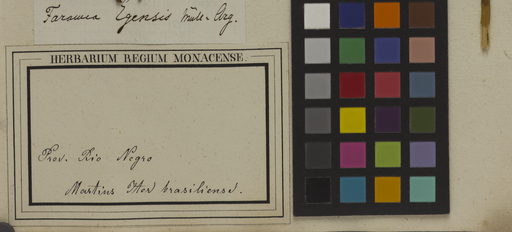 Faramea Egensis Müll-Arg.
HERBARIUM REGIUM MONACENSE.
Prov. Rio Negro
Martius Iter brasiliense.